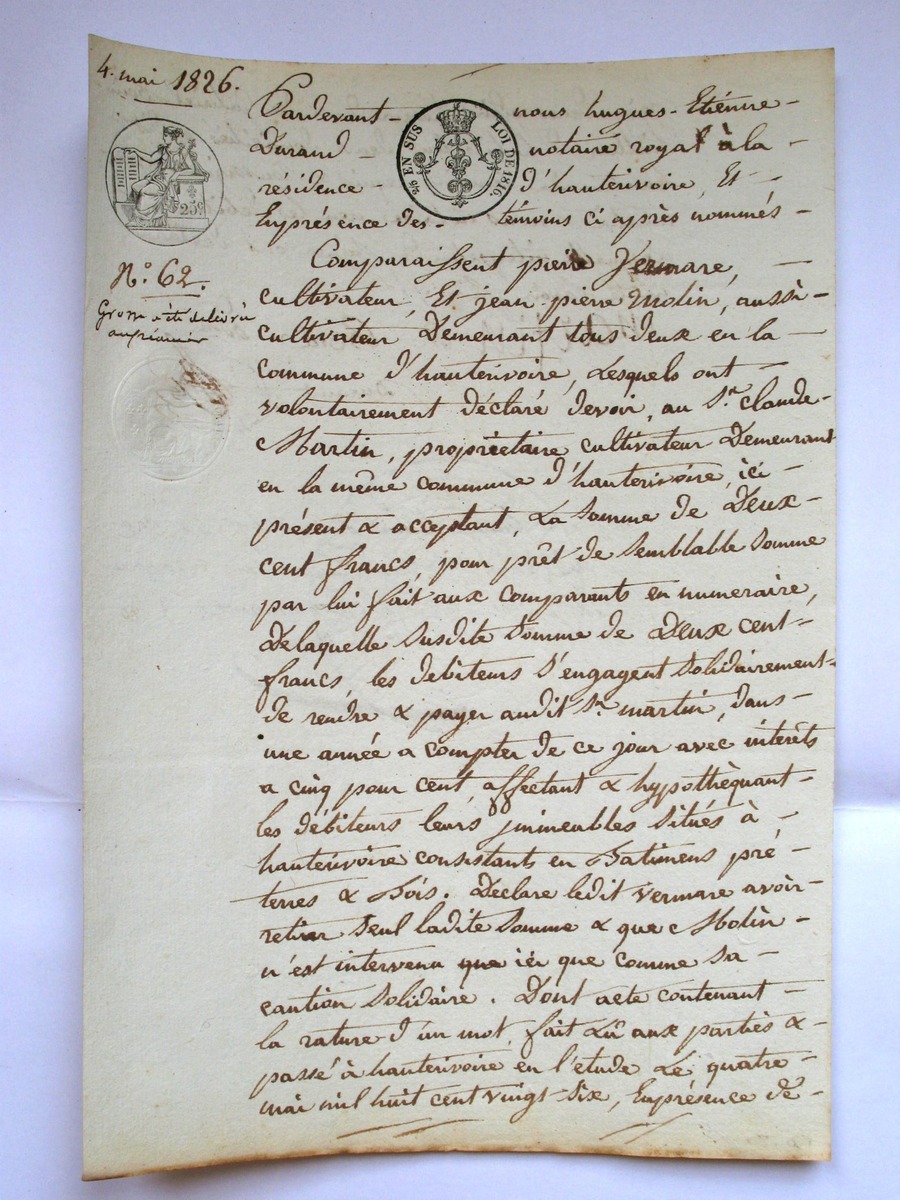 4. mai 1826.
Pardevant nous hugues-Etiénne
Durand notaire royal à la
résidence d'hauterivoire, Et
Enprésence des témoins ci après nommés
EN SUS LOI DE 1816.
25c
N.o 62.
Grosse a été délivrée
au créancier
Comparaissent pierre Vermare,
cultivateur, Et jean pierre Molin, aussi
cultivateur Demeurant tous deux en la
commune d'hauterivoire, Lesquels ont
volontairement déclaré devoir, au Sr. claude
Martin, propriétaire cultivateur Demeurant
en la même commune d'hauterivoire, ici
présent & acceptant, La somme de Deux
cent francs, pour prêt de semblable somme
par lui fait aux comparants en numeraire,
De laquelle susdite somme de Deux cent
francs, les débiteurs s'engagent solidairement
de rendre & payer audit Sr. martin, dans
une année a compter de ce jour avec intérêts
a cinq pour cent, affectant & hypothèquant
les débiteurs leurs immeubles situés à
hauterivoire consistants en Batimens, pré
terres & Bois. Déclare ledit vermare avoir
retirer seul ladite somme & que Molin
n'est intervenu que ici que comme sa
caution solidaire. Dont acte contenant
la rature d'un mot, fait Lû aux parties &
passé à hauterivoire en l'étude Le quatre
mai mil huit cent vingt-six, Enprésence de